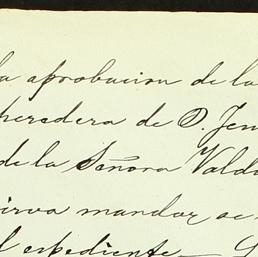 la aprobacion de la
heredera de D. Jen
de la Señora Vald
sirva mandar se
l espediente —